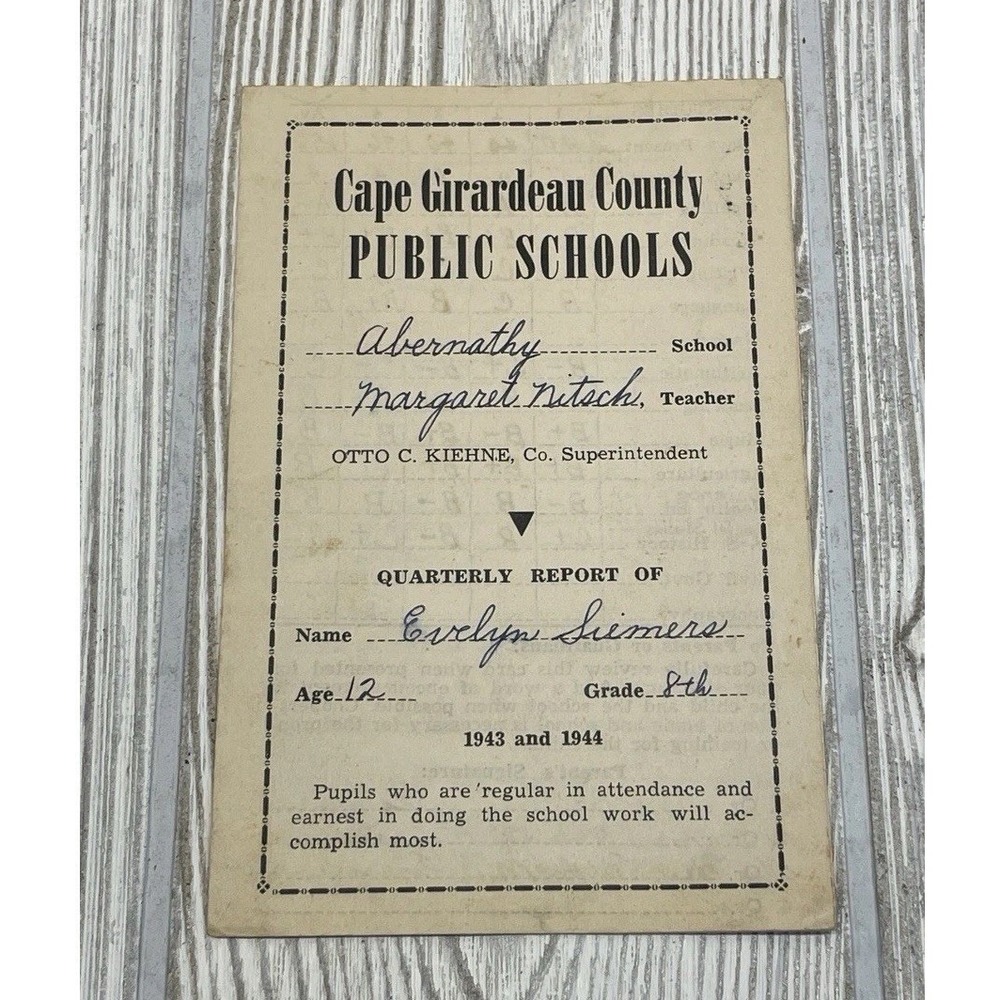 Cape Girardeau County
PUBLIC SCHOOLS
Abernathy School
Margaret Nitsch, Teacher
OTTO C. KIEHNE, Co. Superintendent
QUARTERLY REPORT OF
Name Evelyn Siemers
Age 12 Grade 8th
1943 and 1944
Pupils who are regular in attendance and
earnest in doing the school work will ac-
complish most.